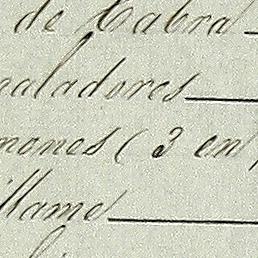 de Cabra
naladores
mones (3 en
illame